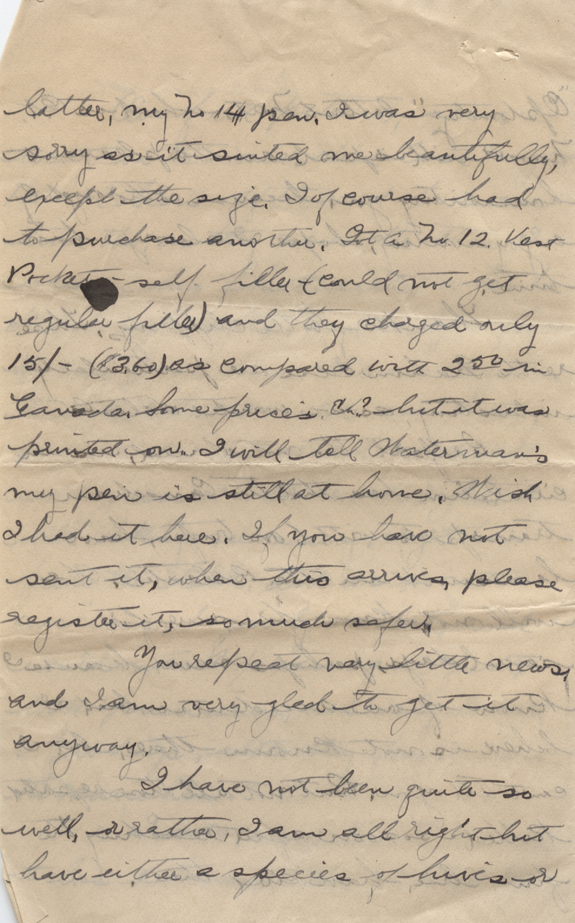 latter, my No 14 pen. I was very
sorry as it suited me beautifully,
except the size. I of course had
to purchase another. Got a No. 12. Vest
Pocket - self filler (could not get
regular filler) and they charged only
15/- ($3.60) as compared with 2 50 in
Canada. Some prices Eh? but it was
printed on. I will tell Waterman's
my pen is still at home. Wish
I had it here. If you have not
sent it, when this arrives, please
register it, so much safer.
You repeat very little news,
and I am very glad to get it
anyway.
I have not been quite so
well, or rather, I am all right but
have either a species of hives or